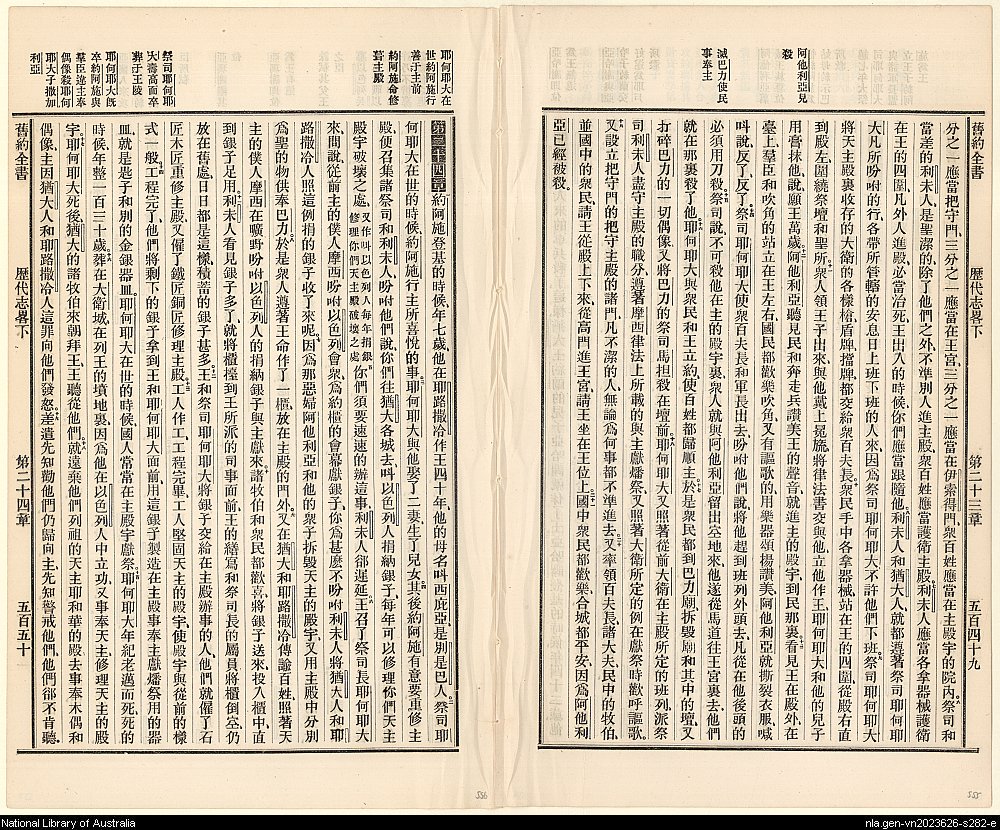 舊約全書 歷代志畧下 第二十三章 五百四十九
阿他利亞見
殺
滅巴力使民
事奉主
分之一應當把守門三分之一應當在王宮三分之一應當在伊索得門衆百姓應當在主殿宇的院內祭司和
當差的利未人是聖潔的除了他們之外不準別人進主殿衆百姓應當護衛主殿利未人應當各拿器械護衛
在王的四圍凡外人進殿必當治死王出入的時候你們應當跟隨他利未人和猶大人就都遵著祭司耶何耶
大凡所吩咐的行各帶所管轄的安息日上班下班的人來因爲祭司耶何耶大不許他們下班祭司耶何耶大
將天主殿裏收存的大衛的各樣槍盾牌擋牌都交給衆百夫長衆民手中各拿器械站在王的四圍從殿右直
到殿左圍繞祭壇和聖所衆人領王子出來與他戴上冕旒將律法書交與他立他作王耶何耶大和他的兒子
用膏抹他說願王萬歲阿他利亞聽見民和奔走兵讚美王的聲音就進主的殿宇到民那裏看見王在殿外在
臺上羣臣和吹角的站立在王左右國民都歡樂吹角又有謳歌的用樂器頌揚讚美阿他利亞就撕裂衣服喊
叫說反了反了祭司耶何耶大使衆百夫長和軍長出去吩咐他們說將他趕到班列外頭去凡從在他後頭的
必須用刀殺祭司說不可殺他在主的殿宇裏衆人就與阿他利亞留出空地來他遂從馬道往王宮裏去他們
就在那裏殺了他耶何耶大與衆民和王立約使百姓都歸順主於是衆民都到巴力廟拆毀廟和其中的壇又
打碎巴力的一切偶像又將巴力的祭司馬担殺在壇前耶何耶大又照著從前大衛在主殿所定的班列派祭
司利未人盡守主殿的職分遵著摩西律法上所載的與主獻燔祭又照著大衛所定的例在獻祭時歡呼謳歌
又設立把門的把守主殿的諸門凡不潔的人無論爲何事都不準進去又率領百夫長諸大夫民中的牧伯
並國中的衆民請王從殿上下來從高門進王宮請王坐在王位上國中衆民都歡樂合城都平安因爲阿他利
亞已經被殺
耶何耶大在
世約阿施行
善于主前
約阿施命修
葺主殿
祭司耶何耶
大壽高而卒
葬于王陵
耶何耶大旣
卒約阿施與
羣臣違主奉
偶像殺耶何
耶大子撒加
利亞
第二十四章約阿施登基的時候年七歲他在耶路撒冷作王四十年他的母名叫西庇亞是別是巴人祭司耶
何耶大在世的時候約阿施行主所喜悅的事耶何耶大與他娶了二妻生了兒女其後約阿施有意要重修主
殿便召集諸祭司和利未人吩咐他們說你們往猶大各城去叫以色列人捐納銀子每年可以修理你們天主
殿宇破壞之處又作叫以色列人每年捐銀修理你們天主殿破壞之處你們須要速速的辦這事利未人卻遲延王召了祭司長耶何耶大
來問說從前主的僕人摩西吩咐以色列會衆爲約櫃的會幕獻銀子你爲甚麼不吩咐利未人將猶大人和耶
路撒冷人照這例捐的銀子收了來呢因爲那惡婦阿他利亞和他的衆子拆毀天主的殿宇又用主殿中分別
爲聖的物供奉巴力於是衆人遵著王命作了一櫃放在主殿的門外又在猶大和耶路撒冷傳諭百姓照著天
主的僕人摩西在曠野吩咐以色列人的捐納銀子與主獻來諸牧伯和衆民都歡喜將銀子送來投入櫃中直
到銀子足用利未人看見銀子多了就將櫃擡到王所派的司事面前王的繕寫和祭司長的屬員將櫃倒空仍
放在舊處日日都是這樣積蓄的銀子甚多王和祭司耶何耶大將銀子交給在主殿辦事的人他們就僱了石
匠木匠重修主殿又僱了鐵匠銅匠修理主殿工人作工工程完畢工人堅固天主的殿宇使殿宇與從前的樣
式一般工程完了他們將剩下的銀子拿到王和耶何耶大面前用這銀子製造在主殿事奉主獻燔祭用的器
皿就是匙子和別的金銀器皿耶何耶大在世的時候國人常常在主殿宇獻祭耶何耶大年紀老邁而死死的
時候年整一百三十歲葬在大衛城在列王的墳地裏因爲他在以色列人中立功又事奉天主修理天主的殿
宇耶何耶大死後猶大的諸牧伯來朝拜王王聽從他們就遠棄他們列祖的天主耶和華的殿去事奉木偶和
偶像主因猶大人和耶路撒冷人這罪向他們發怒差遣先知勸他們仍歸向主先知警戒他們他們卻不肯聽
舊約全書 歷代志畧下 第二十四章 五百五十
556
555
National Library of Australia
nla.gen-vn2023626-s282-e